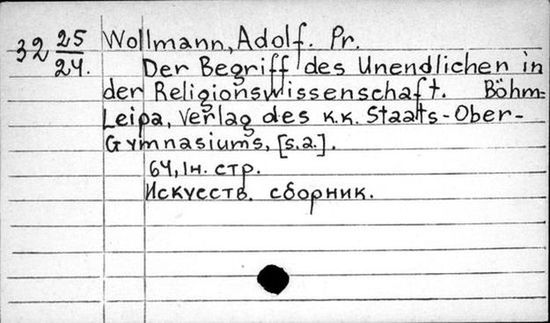 32 25/24. Wollmann, Adolf. Pr.
Der Begriff des Unendlichen in
der Religionswissenschaft. Böhm-
Leipa, Verlag des k.k. Staats-Ober-
Gymnasiums, [s.a.].
64, 1н. стр.
Искусств. сборник.